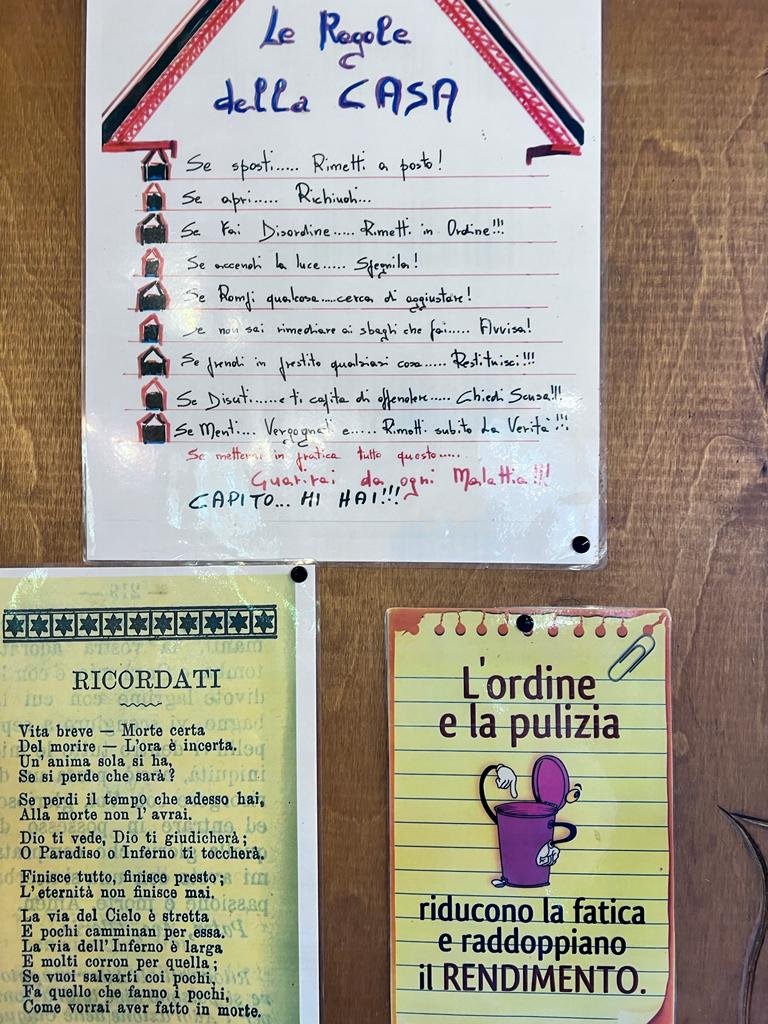 Le Regole
della CASA
Se sposti..... Rimetti a posto!
Se apri..... Richiudi...
Se Fai Disordine..... Rimetti in Ordine!!!
Se accendi la luce..... Spegnila!
Se Rompi qualcosa.....cerca di aggiustare!
Se non sai rimediare ai sbagli che fai..... Avvisa!
Se prendi in prestito qualsiasi cosa..... Restituisci!!!
Se Discuti.....e ti capita di offendere..... Chiedi Scusa!!!
Se Menti... Vergognati e..... Rimetti subito La Verità!!!
Se metterai in pratica tutto questo.....
Guarirai da ogni Malattia!!!
CAPITO... MI HAI!!!
RICORDATI
Vita breve — Morte certa
Del morire — L'ora è incerta.
Un'anima sola si ha,
Se si perde che sarà?
Se perdi il tempo che adesso hai,
Alla morte non l'avrai.
Dio ti vede, Dio ti giudicherà;
O Paradiso o Inferno ti toccherà.
Finisce tutto, finisce presto;
L'eternità non finisce mai.
La via del Cielo è stretta
E pochi camminan per essa.
La via dell'Inferno è larga
E molti corron per quella;
Se vuoi salvarti coi pochi,
Fa quello che fanno i pochi,
Come vorrai aver fatto in morte.
L'ordine
e la pulizia
riducono la fatica
e raddoppiano
il RENDIMENTO.